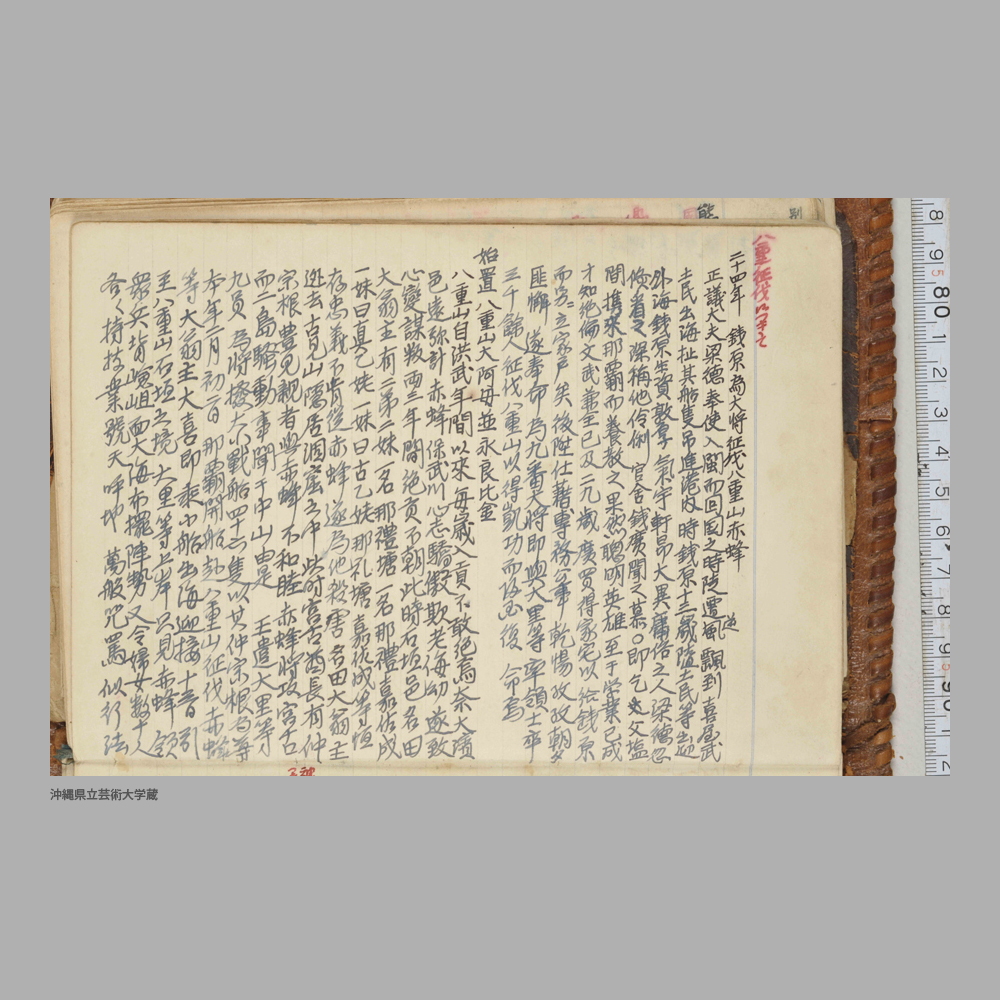 八重山征伐につきて
二十四年 錢原為大将征伐八重山赤蜂
正議大夫梁德奉使入閩而回国之時陡遭逆風飄到喜屋武
士民出海扯其船隻吊進港内時錢原十三歳隨士民等出迎
外海錢原生資敦厚氣宇軒昂大異庸俗之人梁德忽
倹省之深稱他伶俐 官舍錢廣聞之甚〇即乞父塩
間携来那覇而養教之果然聰明英雄至于学業已成
才知絶倫文武兼全已及二九歳 廣買得家宅以給錢原
而另立家戸矣後陞仕籍專務公事 乾惕孜孜朝夕
匪懈 遂奉命為九番大将即與大里等率領士卒
三千餘人征伐八重山以得凱功而返国後 命為
始置八重山大阿母並永良比金
八重山自洪武年間以来毎歳入貢不敢絶焉奈大濱
邑遠弥計赤蜂保武川心志驕傲欺老侮幼遂致
心變謀叛両三年間絶貢不朝此時石垣邑名田
大翁主有二弟二妹一名那禮塘一名那禮嘉佐成
一妹曰真乙姥一妹曰古乙姥那礼塘嘉佐成等恒
存忠義不肯従赤蜂遂為他殺害名田大翁主
逃去古見山隱居洞窟之中此時宮古酋長有仲
宗根豊見親者與赤蜂不和睦赤蜂将攻宮古
而二島騒動事聞于中山由是 王遣大里等
九員為将撥大小戰船四十六隻以其仲宗根為導
本年二月初二日那覇開船赴八重山征伐赤蜂
等大翁主大喜即乗小船出海迎接十三日引
至八重山石垣之境大里等上岸以見赤蜂領
衆兵背嶮岨面大海布擺陣勢又令婦女数十人
各々持枝葉號天呼地 萬般咒罵似行法
沖縄県立芸術大学蔵